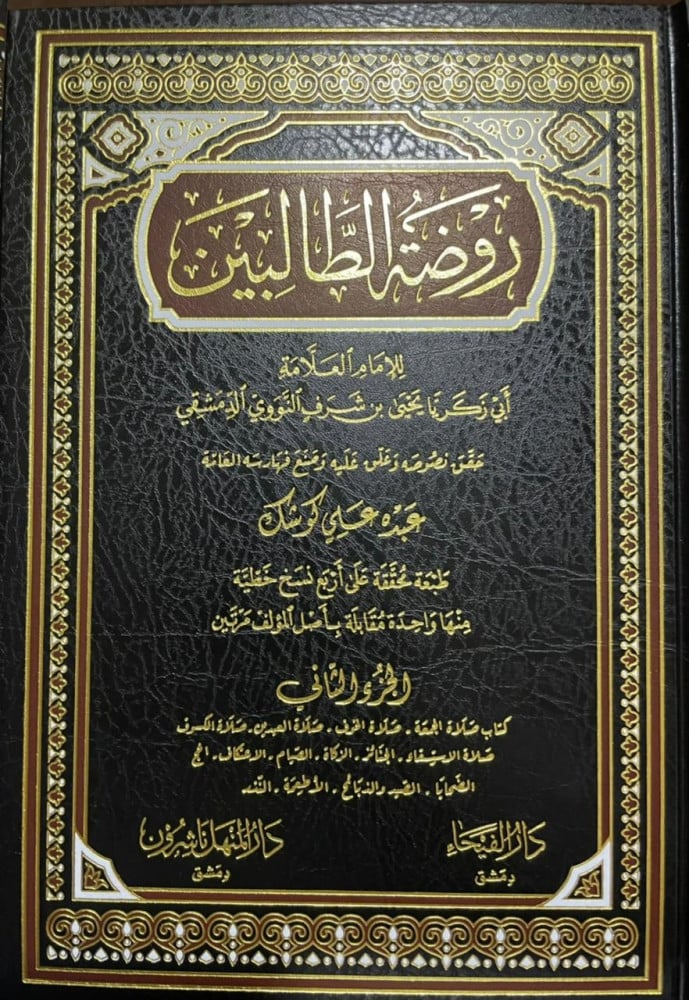 رَوْضَةُ الطَّالِبِين
لِلإِمَامِ العَلَّامَةِ
أَبِي زَكَرِيَّا يَحْيَىٰ بن شَرَفٍ النَّوَوِيِّ الدِّمَشْقِي
حَقَّقَ نصُوصَه وَعَلَّق عَلَيه وَصَنَعَ فهَارسَه العَامَّة
عَبْدُه عَلِي كُوشك
طَبْعَة مُحَقَّقَة عَلَىٰ أَرْبَع نسَخ خَطّيَّة
مِنْهَا وَاحِدَة مُقَابلَة بِأَصْل المُؤلّف مَرَّتَين
الجُزءُ الثَّانِي
كتاب صَلَاة الجمعَة . صَلَاة الخوف . صَلَاة العيدين . صَلَاة الكسوف
صَلَاة الاستسقاء . الجنَائز . الزكاة . الصِّيام . الاعتكاف . الحج
الضَّحايَا . الصَّيد والذبَائح . الأطعِمَة . النَّذر
دَارُ الفَيْحَاء
دِمَشق
دَارُ المَنهَل نَاشِرُون
دِمَشق